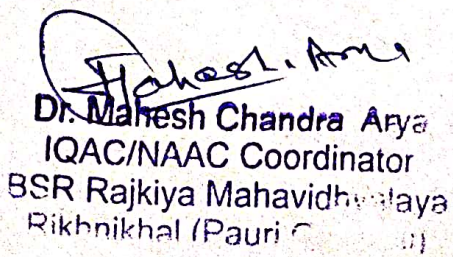 Mahesh. Arya
Dr. Mahesh Chandra Arya
IQAC/NAAC Coordinator
BSR Rajkiya
Rikhnikhal (Pauri